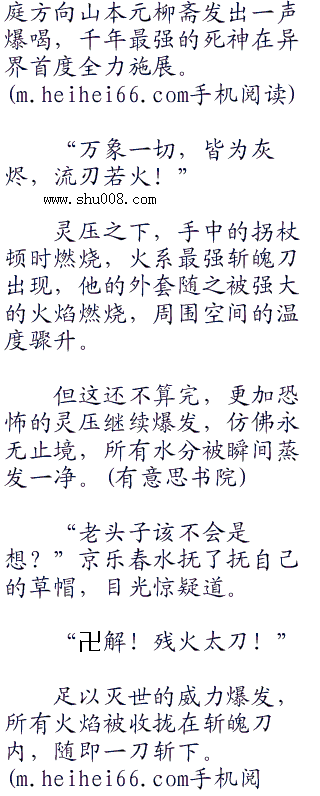 庭方向山本元柳斋发出一声
爆喝，千年最强的死神在异
界首度全力施展。
(m.heihei66.com手机阅读)
“万象一切，皆为灰
烬，流刃若火！”
www.shu008.com
灵压之下，手中的拐杖
顿时燃烧，火系最强斩魄刀
出现，他的外套随之被强大
的火焰燃烧，周围空间的温
度骤升。
但这还不算完，更加恐
怖的灵压继续爆发，仿佛永
无止境，所有水分被瞬间蒸
发一净。(有意思书院)
“老头子该不会是
想？”京乐春水抚了抚自己
的草帽，目光惊疑道。
“卍解！残火太刀！”
足以灭世的威力爆发，
所有火焰被收拢在斩魄刀
内，随即一刀斩下。
(m.heihei66.com手机阅